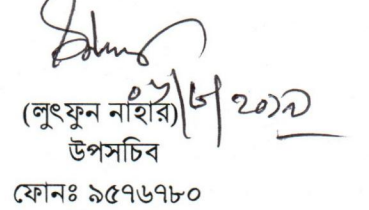 ০৬/৮/২০১৯
(লুৎফুন নাহার)
উপসচিব
ফোনঃ ৯৫৭৬৭৮০